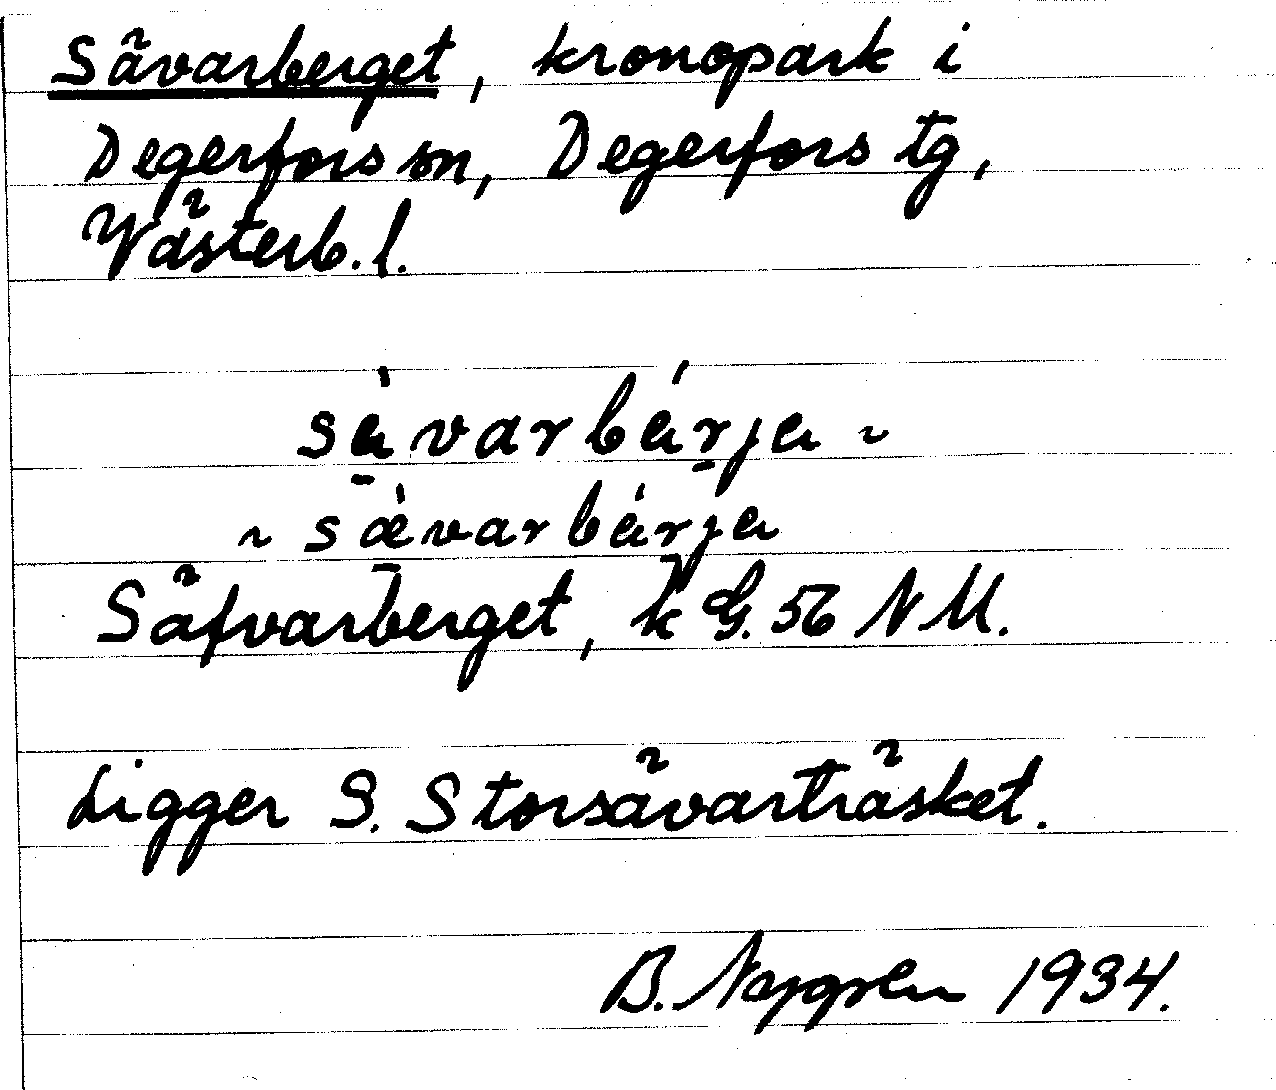 Sävarberget, kronopark i
Degerfors sn, Degerfors tg,
Västerb. l.
sàvarbárja ~
~ sæ̀varbárja
Säfvarberget, k G. 56 NM.
Ligger S. Storsävarträsket.
B. 1934.